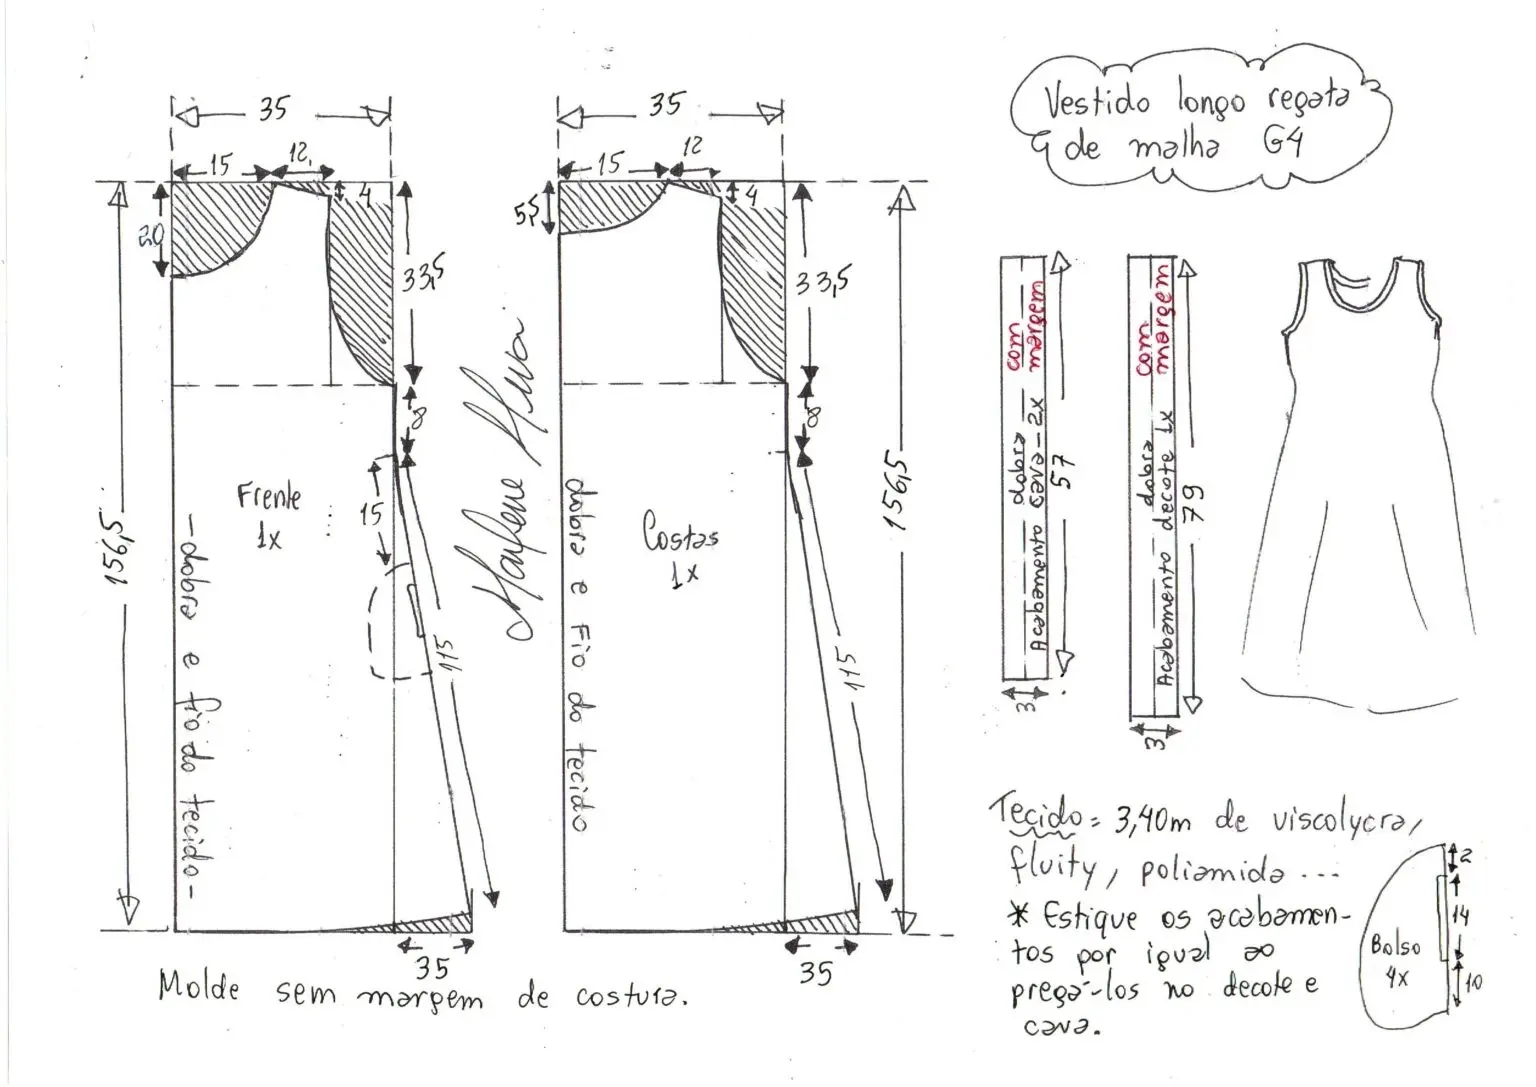 Vestido longo regata
de malha G4
35
15
12
4
20
33,5
8
156,5
Frente
1x
15
115
- dobra e fio do tecido -
35
Marlene Mukai
35
15
12
4
5,5
33,5
8
156,5
Costas
1x
115
dobra e Fio do tecido
35
Molde sem margem de costura.
com
margem
dobra
Acabamento cava - 2x
57
3
com
margem
dobra
Acabamento decote 1x
79
3
Tecido = 3,40m de viscolycra,
fluity, poliamida ...
* Estique os acabamen-
tos por igual ao
pregá-los no decote e
cava.
Bolso
4x
2
14
10